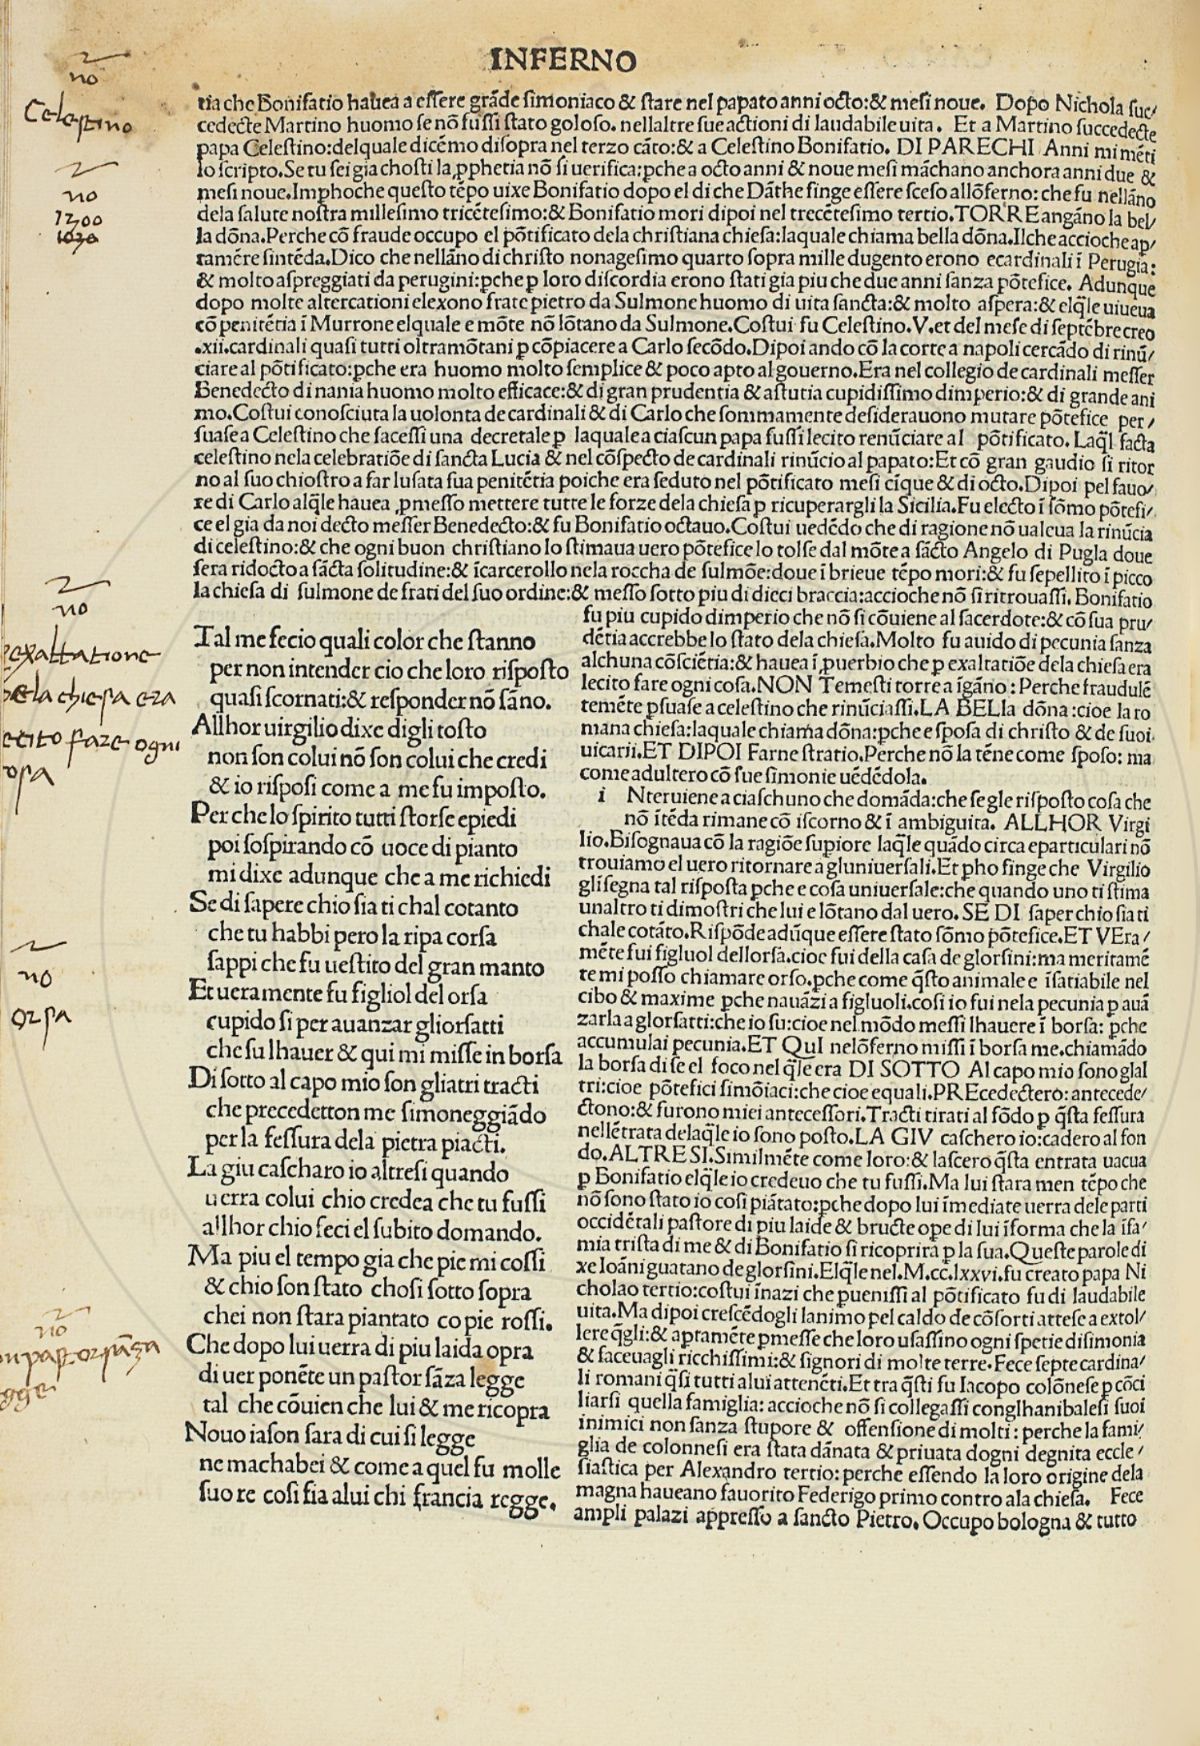 INFERNO
no
Celestino
no
1300
1030
tia che Bonifatio hauea a essere grãde simoniaco & stare nel papato anni octo:& mesi noue. Dopo Nichola suc/
cedecte Martino huomo se nõ fussi stato goloso. nellaltre sue actioni di laudabile uita. Et a Martino succedecte
papa Celestino:delquale dicẽmo disopra nel terzo cãto:& a Celestino Bonifatio. DI PARECHI Anni mi mẽti
lo scripto.Se tu sei gia chosti la ꝓphetia nõ si uerifica:pche a octo anni & noue mesi mãchano anchora anni due &
mesi noue.Imphoche questo tẽpo uixe Bonifatio dopo el di che Dãthe finge essere sceso allõferno: che fu nellãno
dela salute nostra millesimo tricẽtesimo:& Bonifatio mori dipoi nel trecẽtesimo tertio.TORRE angãno la bel/
la dõna.Perche cõ fraude occupo el põtificato dela christiana chiesa:laquale chiama bella dõna.Ilche accioche ap/
tamẽte sintẽda.Dico che nellãno di christo nonagesimo quarto sopra mille dugento erono ecardinali ĩ Perugia:
& molto aspreggiati da perugini:pche ꝑ loro discordia erono stati gia piu che due anni sanza põtefice. Adunque
dopo molte altercationi elexono frate pietro da Sulmone huomo di uita sancta:& molto aspera:& elq̃le uiueua
cõ penitẽtia ĩ Murrone elquale e mõte nõ lõtano da Sulmone.Costui fu Celestino.V.et del mese di septẽbre creo
.xii.cardinali quasi tutti oltramõtani ꝑ cõpiacere a Carlo secõdo.Dipoi ando cõ la corte a napoli cercãdo di rinũ/
ciare al põtificato:pche era huomo molto semplice & poco apto al gouerno.Era nel collegio de cardinali messer
Benedecto di nania huomo molto efficace:& di gran prudentia & astutia cupidissimo dimperio:& di grande ani
mo.Costui conosciuta la uolonta de cardinali & di Carlo che sommamente desiderauono mutare põtefice per/
suase a Celestino che facessi una decretale ꝑ laquale a ciascun papa fussi lecito renũciare al põtificato. Laq̃l facta
celestino nela celebratiõe di sancta Lucia & nel cõspecto de cardinali rinũcio al papato:Et cõ gran gaudio si ritor
no al suo chiostro a far lusata sua penitẽtia poiche era seduto nel põtificato mesi cĩque & di octo.Dipoi pel fauo/
re di Carlo alq̃le hauea ꝓmesso mettere tutte le forze dela chiesa ꝑ ricuperargli la Sicilia.Fu electo ĩ sõmo põtefi/
ce el gia da noi decto messer Benedecto:& fu Bonifatio octauo.Costui uedẽdo che di ragione nõ ualeua la rinũcia
di celestino:& che ogni buon christiano lo stimaua uero põtefice lo tolse dal mõte a sãcto Angelo di Pugla doue
sera ridocto a sãcta solitudine:& ĩcarcerollo nela roccha de sulmõe:doue ĩ brieue tẽpo mori:& fu sepellito ĩ picco
la chiesa di sulmone de frati del suo ordine:& messo sotto piu di dieci braccia:accioche nõ si ritrouassi. Bonifatio
fu piu cupido dimperio che nõ si cõuiene al sacerdote:& cõ sua pru/
dẽtia accrebbe lo stato dela chiesa.Molto fu auido di pecunia sanza
alchuna cõsciẽtia:& hauea ĩ ꝓuerbio che ꝑ exaltatiõe dela chiesa era
lecito fare ogni cosa.NON Temesti torre a ĩgãno : Perche fraudulẽ
temẽte ꝑsuase a celestino che rinũciassi.LA BELla dõna :cioe la ro
mana chiesa:laquale chiama dõna:pche e sposa di christo & de suoi
uicarii.ET DIPOI Farne stratio.Perche nõ la tẽne come sposo: ma
come adultero cõ sue simonie uẽdẽdola.
i Nteruiene a ciaschuno che domãda:che se gle risposto cosa che
nõ ĩtẽda rimane cõ iscorno & ĩ ambiguita. ALLHOR Virgi
lio.Bisognaua cõ la ragiõe supiore laq̃le quãdo circa eparticulari nõ
trouiamo el uero ritornare a gluniuersali.Et pho finge che Virgilio
gli segna tal risposta pche e cosa uniuersale:che quando uno ti stima
unaltro ti dimostri che lui e lõtano dal uero. SE DI saper chio sia ti
chale cotãto.Rispõde adũque essere stato sõmo põtefice.ET VEra/
mẽte fui figluol dellorsa.cioe fui della casa de glorsini:ma meritamẽ
te mi posso chiamare orso.pche come q̃sto animale e ĩsatiabile nel
cibo & maxime pche nauãzi a figluoli.cosi io fui nela pecunia ꝑ auã
zarla a glorsatti:che io su:cioe nel mõdo messi lhauere ĩ borsa: pche
accumulai pecunia.ET QuI nelõferno missi ĩ borsa me.chiamãdo
la borsa di se el foco nel q̃le era DI SOTTO Al capo mio sono glal
tri:cioe põtefici simõiaci:che cioe equali.PREcedectero: antecede/
ctono:& furono miei antecessori.Tracti tirati al fõdo ꝑ q̃sta fessura
nellẽtrata delaq̃le io sono posto.LA GIV caschero io:cadero al fon
do.ALTRESI.Similmẽte come loro:& lascero q̃sta entrata uacua
ꝑ Bonifatio elq̃le io credeuo che tu fussi.Ma lui stara men tẽpo che
nõ sono stato io cosi piãtato:pche dopo lui ĩmediate uerra dele parti
occidẽtali pastore di piu laide & bructe ope di lui ĩforma che la ĩfa/
mia trista di me & di Bonifatio si ricoprira ꝑ la sua.Queste parole di
xe Ioãni guatano de glorsini.Elq̃le nel.M.cc.lxxvi.fu creato papa Ni
cholao tertio:costui ĩnazi che puenissi al põtificato fu di laudabile
uita.Ma dipoi crescẽdogli lanimo pel caldo de cõsorti attese a extol/
lere q̃gli:& aptamẽte ꝑmesse che loro usassino ogni spetie disimonia
& faceuagli ricchissimi:& signori di molte terre.Fece septe cardina/
li romani q̃si tutti a lui attenẽti.Et tra q̃sti fu Iacopo colõnese ꝑ cõci
liarsi quella famiglia: accioche nõ si collegassi conglhanibalesi suoi
inimici non sanza stupore & offensione di molti : perche la fami/
glia de colonnesi era stata dãnata & priuata dogni degnita eccle/
siastica per Alexandro tertio: perche essendo la loro origine dela
magna haueano fauorito Federigo primo contro ala chiesa. Fece
ampli palazi appresso a sancto Pietro. Occupo bologna & tutto
Tal me fecio quali color che stanno
per non intender cio che loro risposto
quasi scornati:& responder nõ sãno.
Allhor uirgilio dixe digli tosto
non son colui nõ son colui che credi
& io risposi come a me fu imposto.
Per che lo spirito tutti storse epiedi
poi sospirando cõ uoce di pianto
mi dixe adunque che a me richiedi
Se di sapere chio sia ti chal cotanto
che tu habbi pero la ripa corsa
sappi che fu uestito del gran manto
Et ueramente fu figliol del orsa
cupido si per auanzar gliorsatti
che su lhauer & qui mi misse in borsa
Di sotto al capo mio son gliatri tracti
che precedetton me simoneggiãdo
per la fessura dela pietra piacti.
La giu cascharo io altresi quando
uerra colui chio credea che tu fussi
allhor chio feci el subito domando.
Ma piu el tempo gia che pie mi cossi
& chio son stato chosi sotto sopra
chei non stara piantato co pie rossi.
Che dopo lui uerra di piu laida opra
di uer ponẽte un pastor sãza legge
tal che cõuien che lui & me ricopra
Nouo iason sara di cui si legge
ne machabei & come a quel fu molle
suo re cosi fia alui chi francia regge.
no
exaltatione
dela chiesa era
lecito fare ogni
cosa
no
orsa
no
un pastor sãza
legge